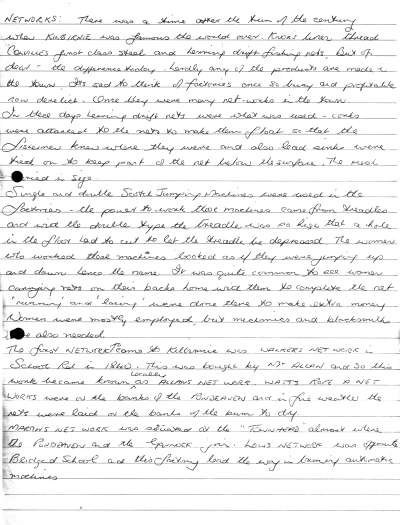 NETWORKS: There was a time after the turn of the century
when KILBIRNIE was famous the world over. Knox linen thread
first class steel and herring drift fishing nets. But oh
dear - the difference today. Hardly any of the products are made in
the town. It's sad to think of factories once so busy and profitable
now derelict. Once they were many net-works in the town.
In these days herring drift nets were what was used - corks
were attached to the nets to make them float so that the
fishermen knew where they were and also lead sinks were
tied on to keep part of the net below the surface. The mesh
varied in size.
Single and double Scotch Jumping Machines were used in the
factories - the power to work these machines came from treadles
and with the double type the treadle was so high that a hole
in the floor had to cut to let the treadle be depressed. The women
who worked these machines looked as if they were jumping up
and down hence the name. It was quite common to see women
carrying nets on their backs home with them to complete the net
and 'lacing' were done there to make extra money
Women were mostly employed but mechanics and blacksmiths
were also needed.
The first NETWORK to came to Kilbirnie was WALKER'S NET WORK in
School Rd in 1840. This was bought by Mr ALLAN and so this
work became known locally as ALLAN'S NET WORK. WATTS ROPE & NET
WORKS were on the banks of the PUNDEAVEN and in fine weather the
nets were laid on the banks of the burn to dry.
MARTIN'S NET WORK was situated at the "TOWNHEAD" almost where
the PUNDEAVEN and the join. LOW'S NETWORK was opposite
Bridgend School and this factory lead the way in turning automatic
machines